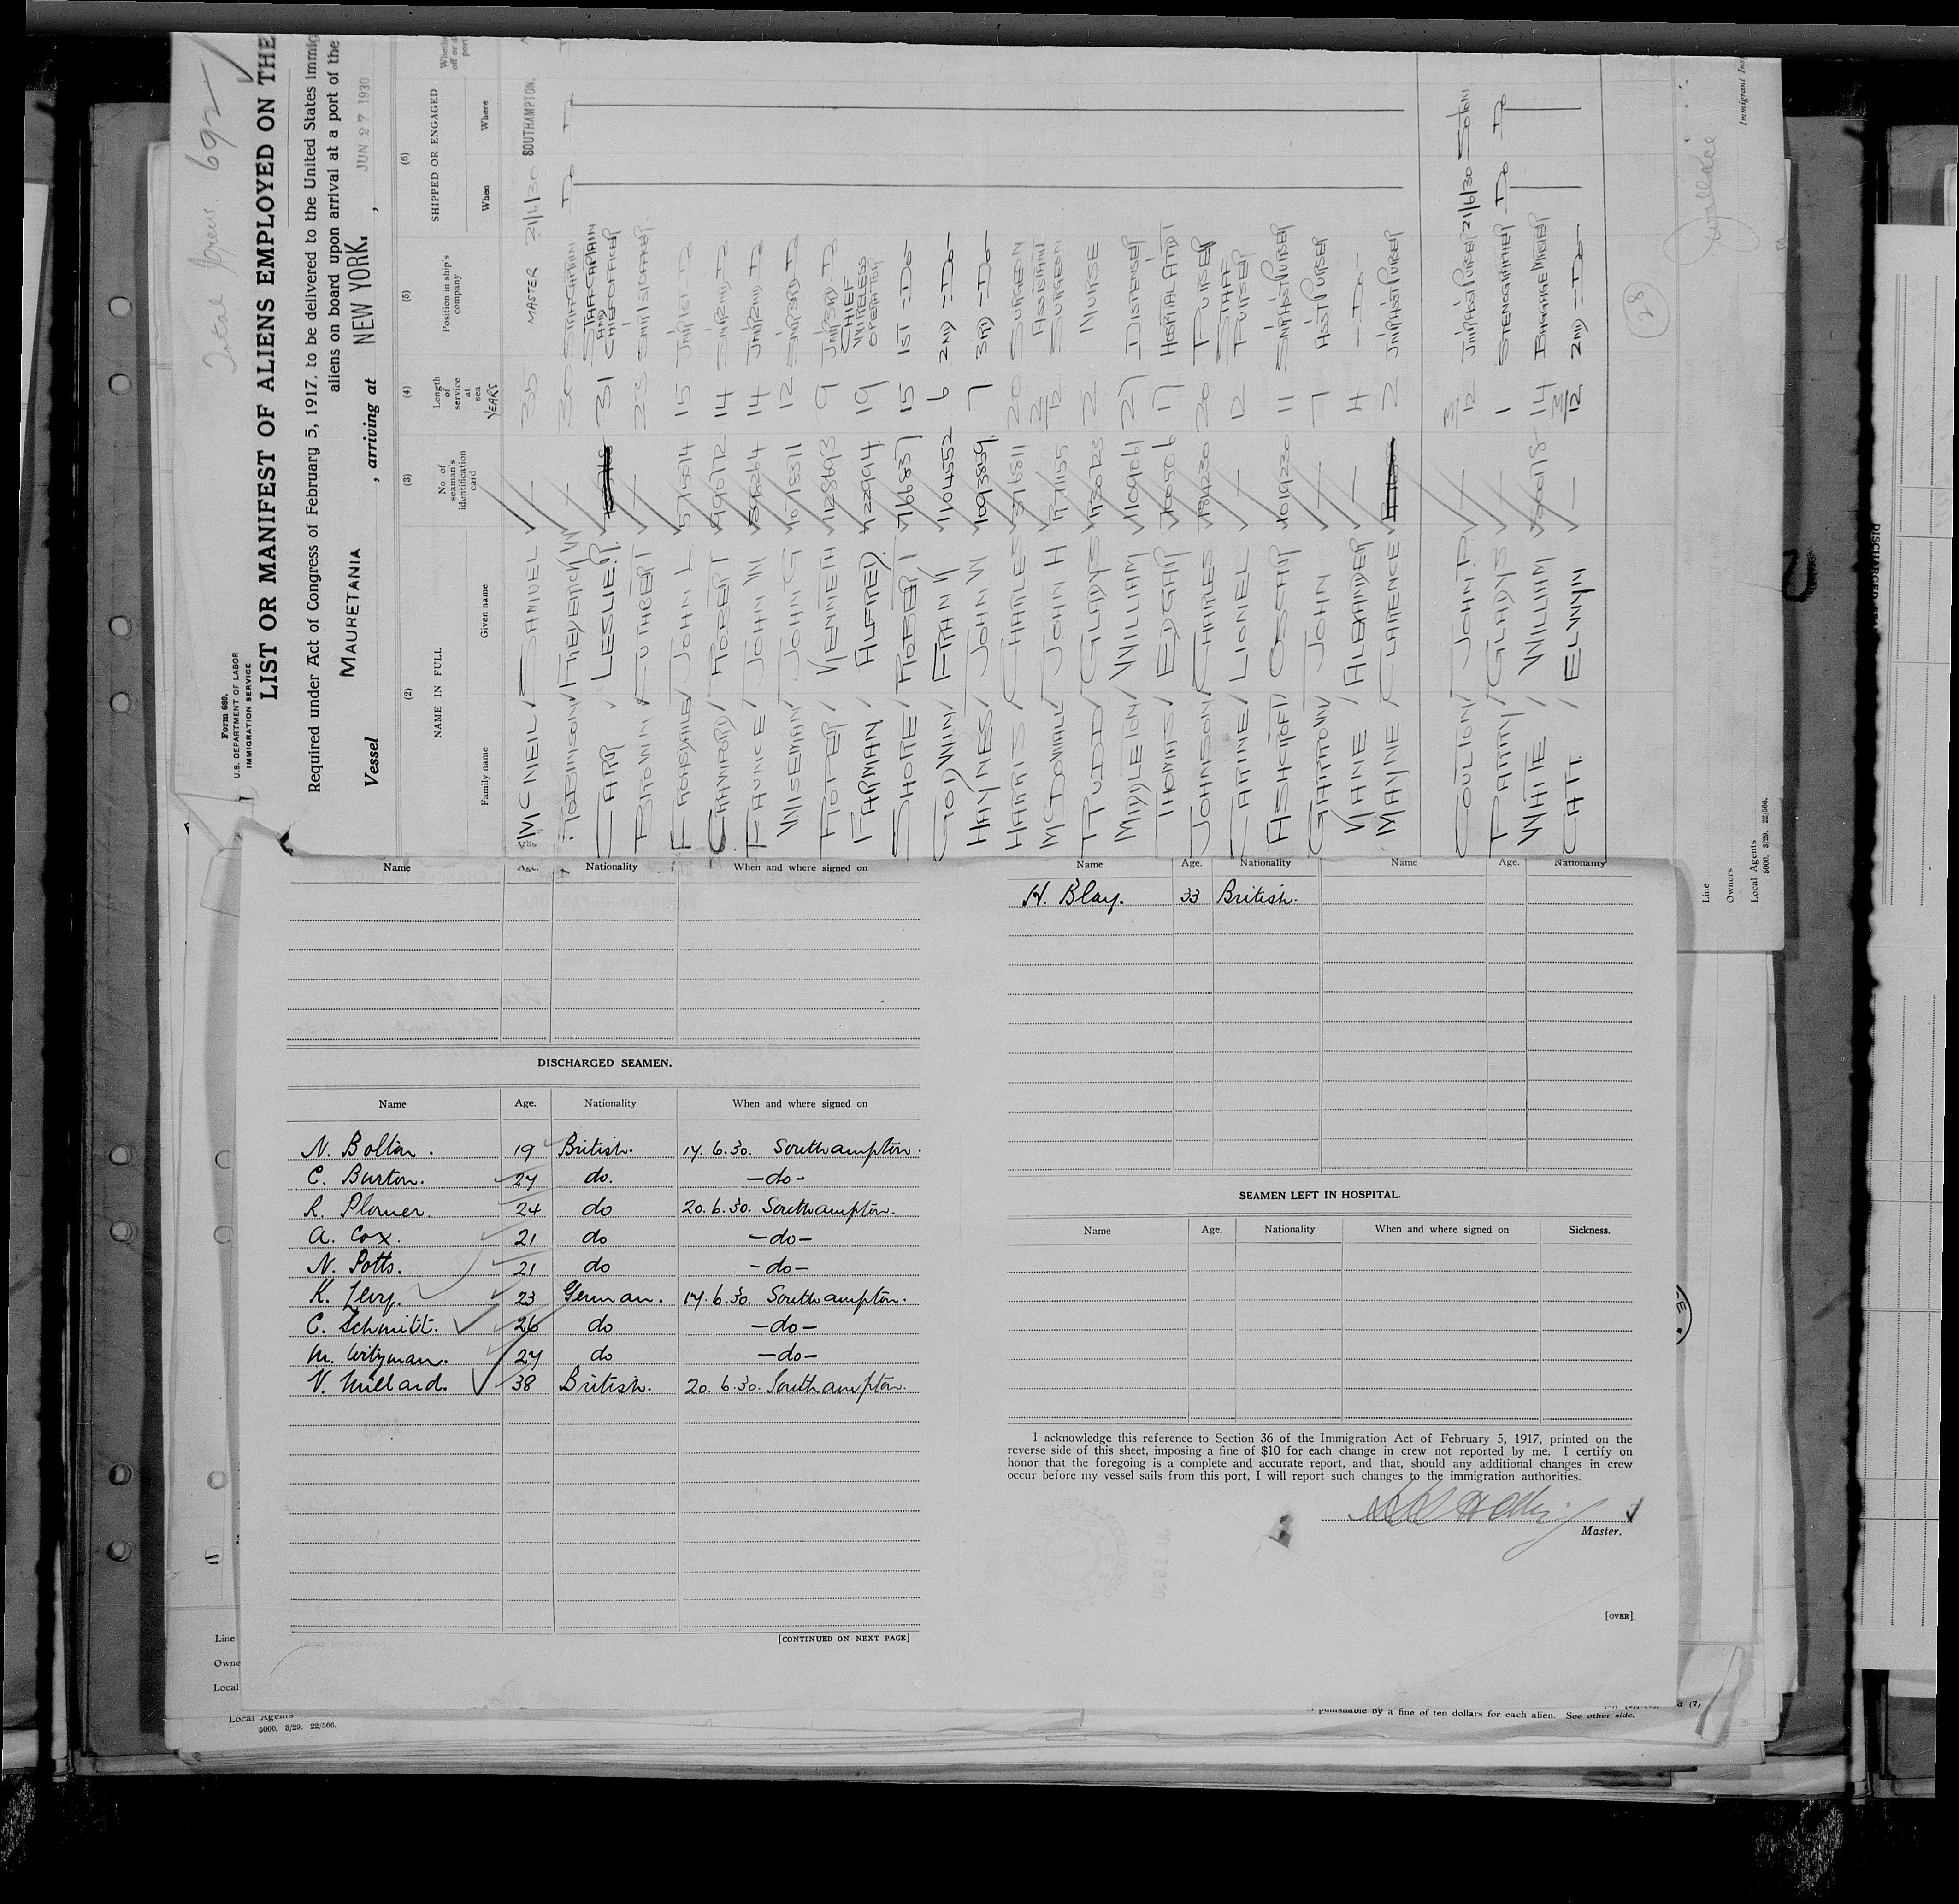 Total Crew. 692
Form 680.
U.S. DEPARTMENT OF LABOR
IMMIGRATION SERVICE
LIST OR MANIFEST OF ALIENS EMPLOYED ON THE
Required under Act of Congress of February 5, 1917, to be delivered to the United States immig
aliens on board upon arrival at a port of the
Vessel MAURETANIA , arriving at NEW YORK. , JUN 27 1930
(2) (3) (4) (5) (6)
NAME IN FULL
Family name Given name
No of seaman's identification card
Length of service at sea
YEARS
Position in ship's company
SHIPPED OR ENGAGED
When Where
MCNEIL / SAMUEL — 35 MASTER 21/6/30 SOUTHAMPTON.
ROBINSON / FREDERICK W — 30 STAFF CAPTAIN DO DO
CARR / LESLIE. R. 31 STAFF CAPTAIN AND CHIEF OFFICER
BROWN / CUTHBERT — 23 SNR 1ST OFFICER
JOHN L. 15 JNR 1ST DO
CRAWFORD / ROBERT 14 SNR 2ND DO
FAUNCE / JOHN W 14 JNR 2ND DO
WISEMAN / JOHN G 12 SNR 3RD DO
ROPER / KENNETH 9 JNR 3RD DO
FARMAN / ALFRED. 19 CHIEF WIRELESS OPERATOR
SHORE / ROBERT 15 1ST -DO-
GODWIN / FRANK 1104552 6 2ND -DO-
HAYNES / JOHN W 1093859 7 3RD -DO-
HARRIS / CHARLES 20 SURGEON
MCDONALL / JOHN H 2/12 ASSISTANT SURGEON
RUDD / GLADYS 2 NURSE
MIDDLETON / WILLIAM 1109061 27 DISPENSER
THOMAS / EDGAR 17 HOSPITAL ATTDT
JOHNSON / CHARLES 20 PURSER
CARINE / LIONEL — 12 STAFF PURSER
ASHCROFT / OSCAR 1019230 11 SNR ASST PURSER
JOHN — 7 ASST PURSER
KANE / ALEXANDER — 4 -DO-
MAYNE / CLARENCE 2 JNR ASST PURSER
COULTON / JOHN P. — 3/12 JNR ASST PURSER 21/6/30 SOTON
PARRY / GLADYS — 1 STENOGRAPHER DO DO
WHITE / WILLIAM 14 BAGGAGE MASTER
CATT / ELWYN — 3/12 2ND -DO-
28
Wallace
Immigrant Ins
Line
Owners
Local Agents
5000. 3/29. 22/566.
Name Age. Nationality When and where signed on
DISCHARGED SEAMEN.
Name Age. Nationality When and where signed on
N. Bolton. 19 British. 17. 6.30. Southampton.
C. Burton. 27 do. —do-
R. Plomer. 24 do 20. 6.30. Southampton.
A. Cox. 21 do —do—
N. Potts. 21 do -do—
K. Levy. 23 German. 17. 6.30. Southampton.
C. Schmitt. 26 do —do—
M. Witzman. 27 do —do—
V. Millard. 38 British. 20. 6.30. Southampton.
[CONTINUED ON NEXT PAGE]
Name Age. Nationality Name Age. Nationality
H. Blay. 33 British.
SEAMEN LEFT IN HOSPITAL.
Name Age. Nationality When and where signed on Sickness.
I acknowledge this reference to Section 36 of the Immigration Act of February 5, 1917, printed on the
reverse side of this sheet, imposing a fine of $10 for each change in crew not reported by me. I certify on
honor that the foregoing is a complete and accurate report, and that, should any additional changes in crew
occur before my vessel sails from this port, I will report such changes to the immigration authorities.
Master.
[OVER]
Line
Owne
Local
Local Agents
5000. 3/29. 22/566.
punishable by a fine of ten dollars for each alien. See other side.